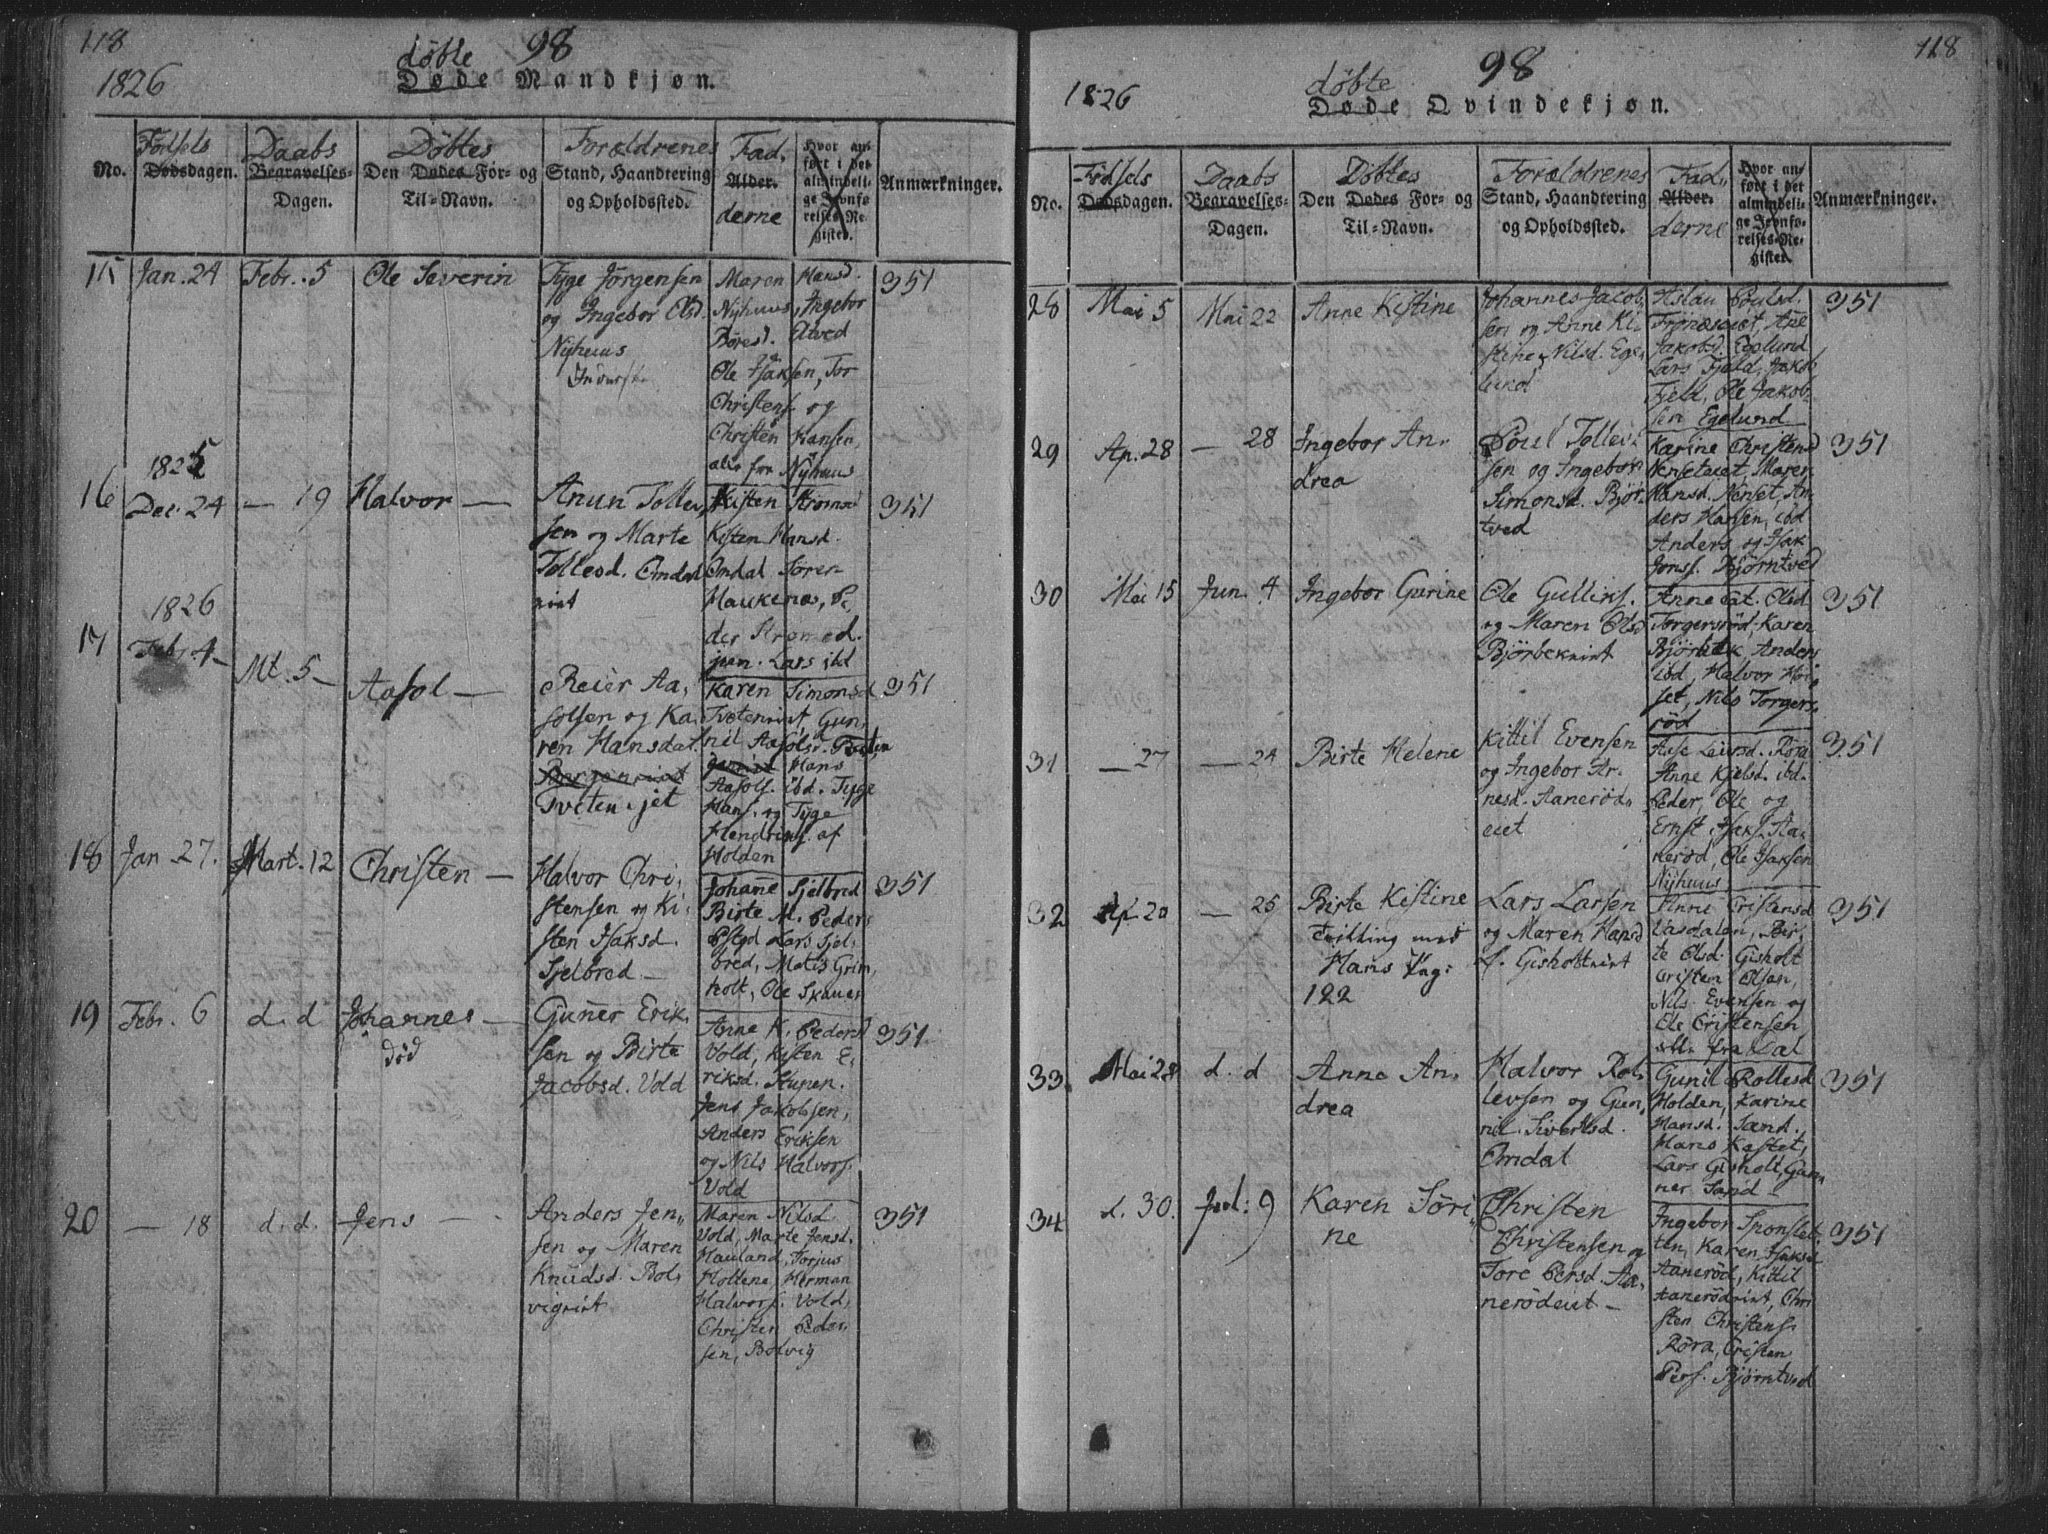 118
98
1826
döbte
Døde Mandkjøn.
No.
Födsels
Dødsdagen.
Daabs
Begravelses-
Dagen.
Döbtes
Den Dødes For- og
Til-Navn.
Forældrenes
Stand, Haandtering
og Opholdssted.
Fad,
Alder.
derne
Hvor an-
ført i det
almindeli-
ge Jevnfø-
relses-Re-
gister.
Anmærkninger.
15
Jan. 24
Febr. 5
Ole Severin
Tyge Jörgensen
og Ingebor Olsd.
Nyhuus
Maren Hansd.
Nyhuus, Ingebor
Ole Isaksen, Tor
Christens. og
Christen Hansen,
alle fra Nyhuus
351
16
1825
Dec. 24
— 19
Halvor —
Anun Tollev,
sen og Marte
Tollevsd. Omdal
Kisten Hansd.
Omdal Sören
der Strömod.
Lars ibd
351
17
1826
Febr. 4
Mt. 5 —
Aasol —
Reier Aa,
solsen og Ka,
ren Hansdat.
Tveten,
Karen Simonsd
Tvetenrint, Gun,
nil Aasolsd.
Hans
Aasols. ibd. Tyge
Hans. og Tyge
Hendrins. af
Holden
351
18
Jan. 27.
Mart. 12
Christen —
Halvor Chri,
stensen og Ki,
sten Isaksd.
Sjelbred —
Johanne Sjelbred
Birte M. Peders
Lars Sjel,
bred, Matis Grim,
holt, Ole Skauen
351
19
Febr. 6
d. d
Johannes —
död
Gunner Erik,
sen og Birte
Jacobsd. Vold
Anne K. Pedersd
Vold, Kisten E,
riksd. Stupen.
Jens Jakobsen,
Anders Eriksen
og Nils Halvors.
Vold
351
20
— 18
d. d.
Jens —
Anders Jen,,
sen og Maren
Knudsd. Bol,
vigrint
Maren Nilsd.
Vold, Marte Jensd.
Hauland, Torjus
Holtene, Herman
Halvors. Vold,
Christen Peder,
sen, Bolvig
351
118
98
1826
döbte
Døde Qvindekjøn.
No.
Födsels
Dødsdagen.
Daabs
Begravelses-
Dagen.
Döbtes
Den Dødes For- og
Til-Navn.
Forældrenes
Stand, Haandtering
og Opholdssted.
Fad,,
Alder.
derne
Hvor an-
ført i det
almindeli-
ge Jevnfø-
relses-Re-
gister.
Anmærkninger.
28
Mai 5
Mai 22
Anne Kistine
Johannes Jacob,
sen og Anne Ki,
stine Nilsd. Ege,
lund
Aslau Poulsd.
Jakobsd. Eglund
Lars Fjeld, Jakob
Fjeld, Ole Jakob-
sen Egelund
351
29
Ap. 28
— 28
Ingebor An,
drea
Poul Tollev,
sen og Ingebor
Simonsd. Björ,
tved
Karine Christensd
Nensetviet, Maren
Hansd. Nenset, An,
ders Hansen, ibd
Anders og Isak
Jons. Björntved
351
30
Mai 15
Jun. 4
Ingebor Gurine
Ole Gullins.
og Maren Olsd
Björbekrint
Anne Cat. Olsd
Torgersröd, Karen
Björbek Anders
ibd, Halvor Höi,
set, Nils Torgers,
röd
351
31
— 27
— 24
Birte Helene
Kittil Evensen
og Ingebor Ar,
nesd. Aaneröd,
eiet
Aase Leivsd. Röra
Anne Kjelsd. ibd.
Peder, Ole og
Ernst Isaks. Aa,
neröd, Ole Isaksen
Nyhuus
351
32
Ap. 20
— 25
Birte Kistine
Tvilling med
Hans Pag:
122
Lars Larsen
og Maren Hansd
L. Gisholtrint
Anne Cristensd
Vasdalen, Bir,
te Olsd. Gisholt
Cristen Olsen,
Nils Evensen og
Ole Cristensen
alle fra Dal
351
33.
Mai 28
d. d
Anne An,
drea
Halvor Rol,
levsen og Gun,
nil Sivertsd.
Omdal
Gunil Rollesd
Holden, Karine
Hansd. Sand.
Hans Kastet,
Lars Gisholt, Gun,
ner Sand —
351
34
d. 30.
Jul: 9
Karen Söri,,
ne
Christen
Christensen og
Tore Persd. Aa,
nerödeiet —
Ingebor Sponslet,
ten, Karen Isaksd
Aaneröd, Kittil
Aanerödrint, Chri
sten Christens.
Röra, Cristen
Pers. Björntved
351